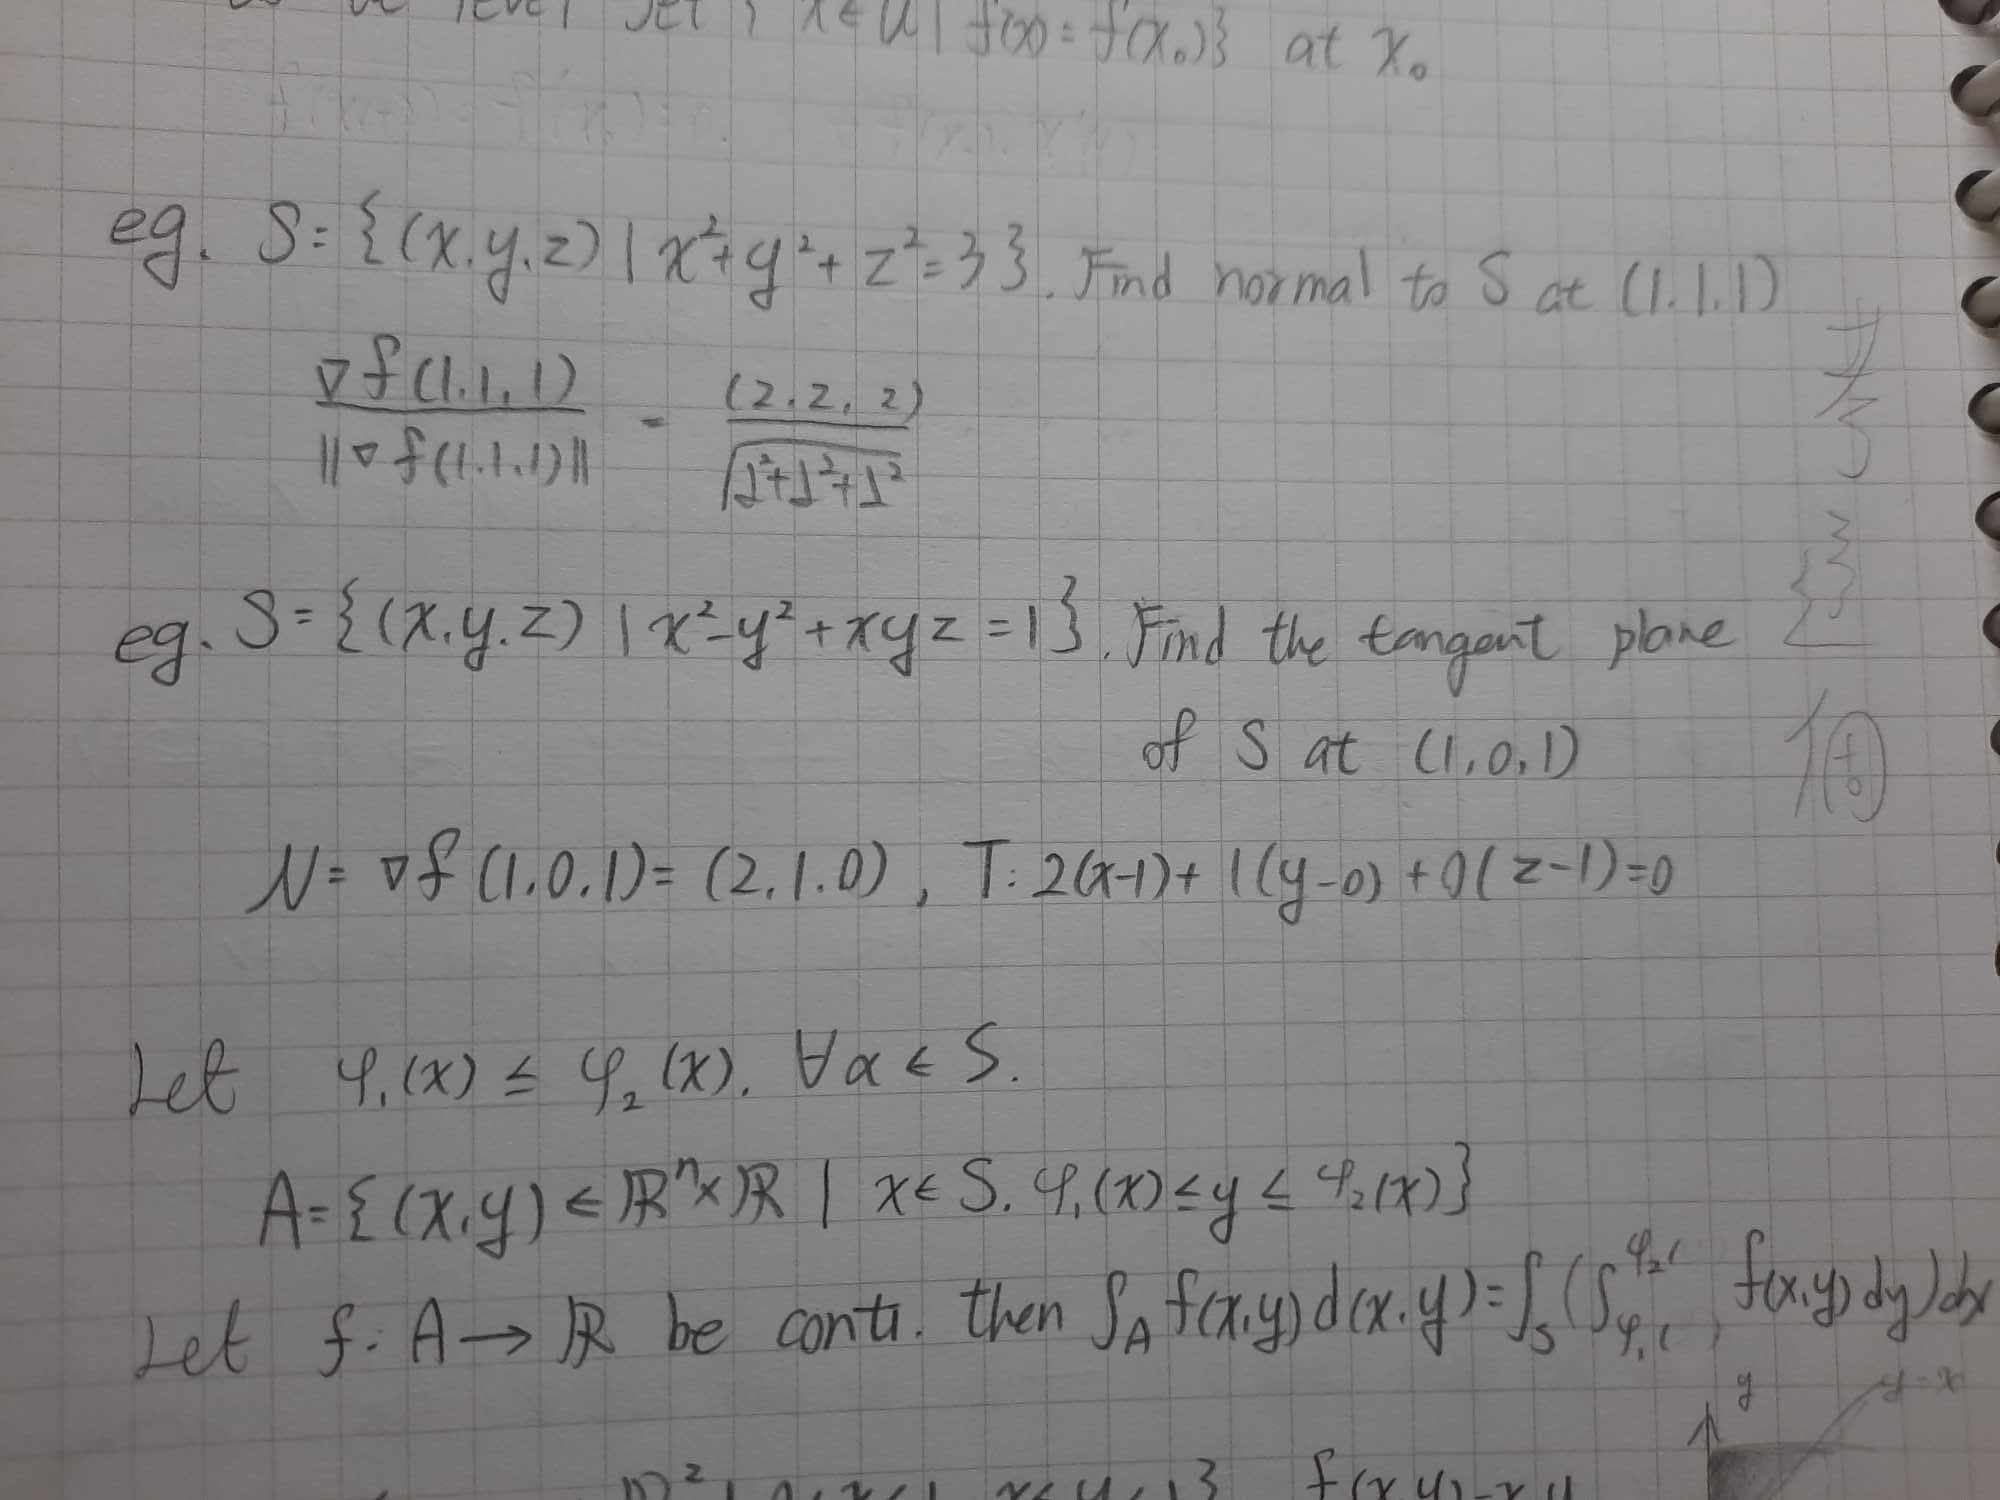 be level set { x ∈ U | f(x) = f(x₀)} at x₀
eg. S = {(x.y.z) | x²+y²+z²=3}. Find normal to S at (1.1.1)
∇f(1.1.1) / ||∇f(1.1.1)|| = (2.2.2) / √(1²+1²+1²)
eg. S = {(x.y.z) | x²-y²+xyz=1}. Find the tangent plane
of S at (1,0,1)
N = ∇f(1.0.1) = (2.1.0), T: 2(x-1)+1(y-0)+0(z-1)=0
Let φ₁(x) ≤ φ₂(x). ∀x ∈ S.
A = {(x.y) ∈ ℝⁿ×ℝ | x ∈ S. φ₁(x) ≤ y ≤ φ₂(x)}
Let f: A → ℝ be conti. then ∫_A f(x.y)d(x.y) = ∫_S (∫_φ₁( )^φ₂( f(x.y)dy)dx
y
y=x
f(x.y)=xy